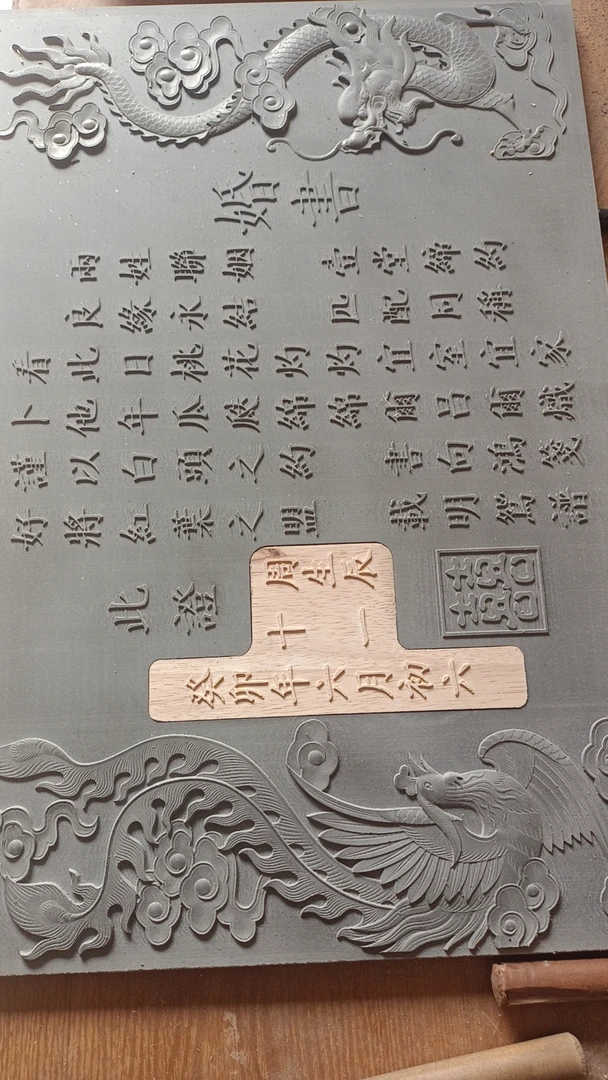 婚書
兩姓聯姻 壹堂締約
良緣永結 匹配同稱
看此日桃花灼灼宜室宜家
卜他年瓜瓞綿綿爾昌爾熾
謹以白頭之約 書向鴻箋
好將紅葉之盟 載明鴛譜
此證
周生辰
十一
癸卯年六月初六
囍